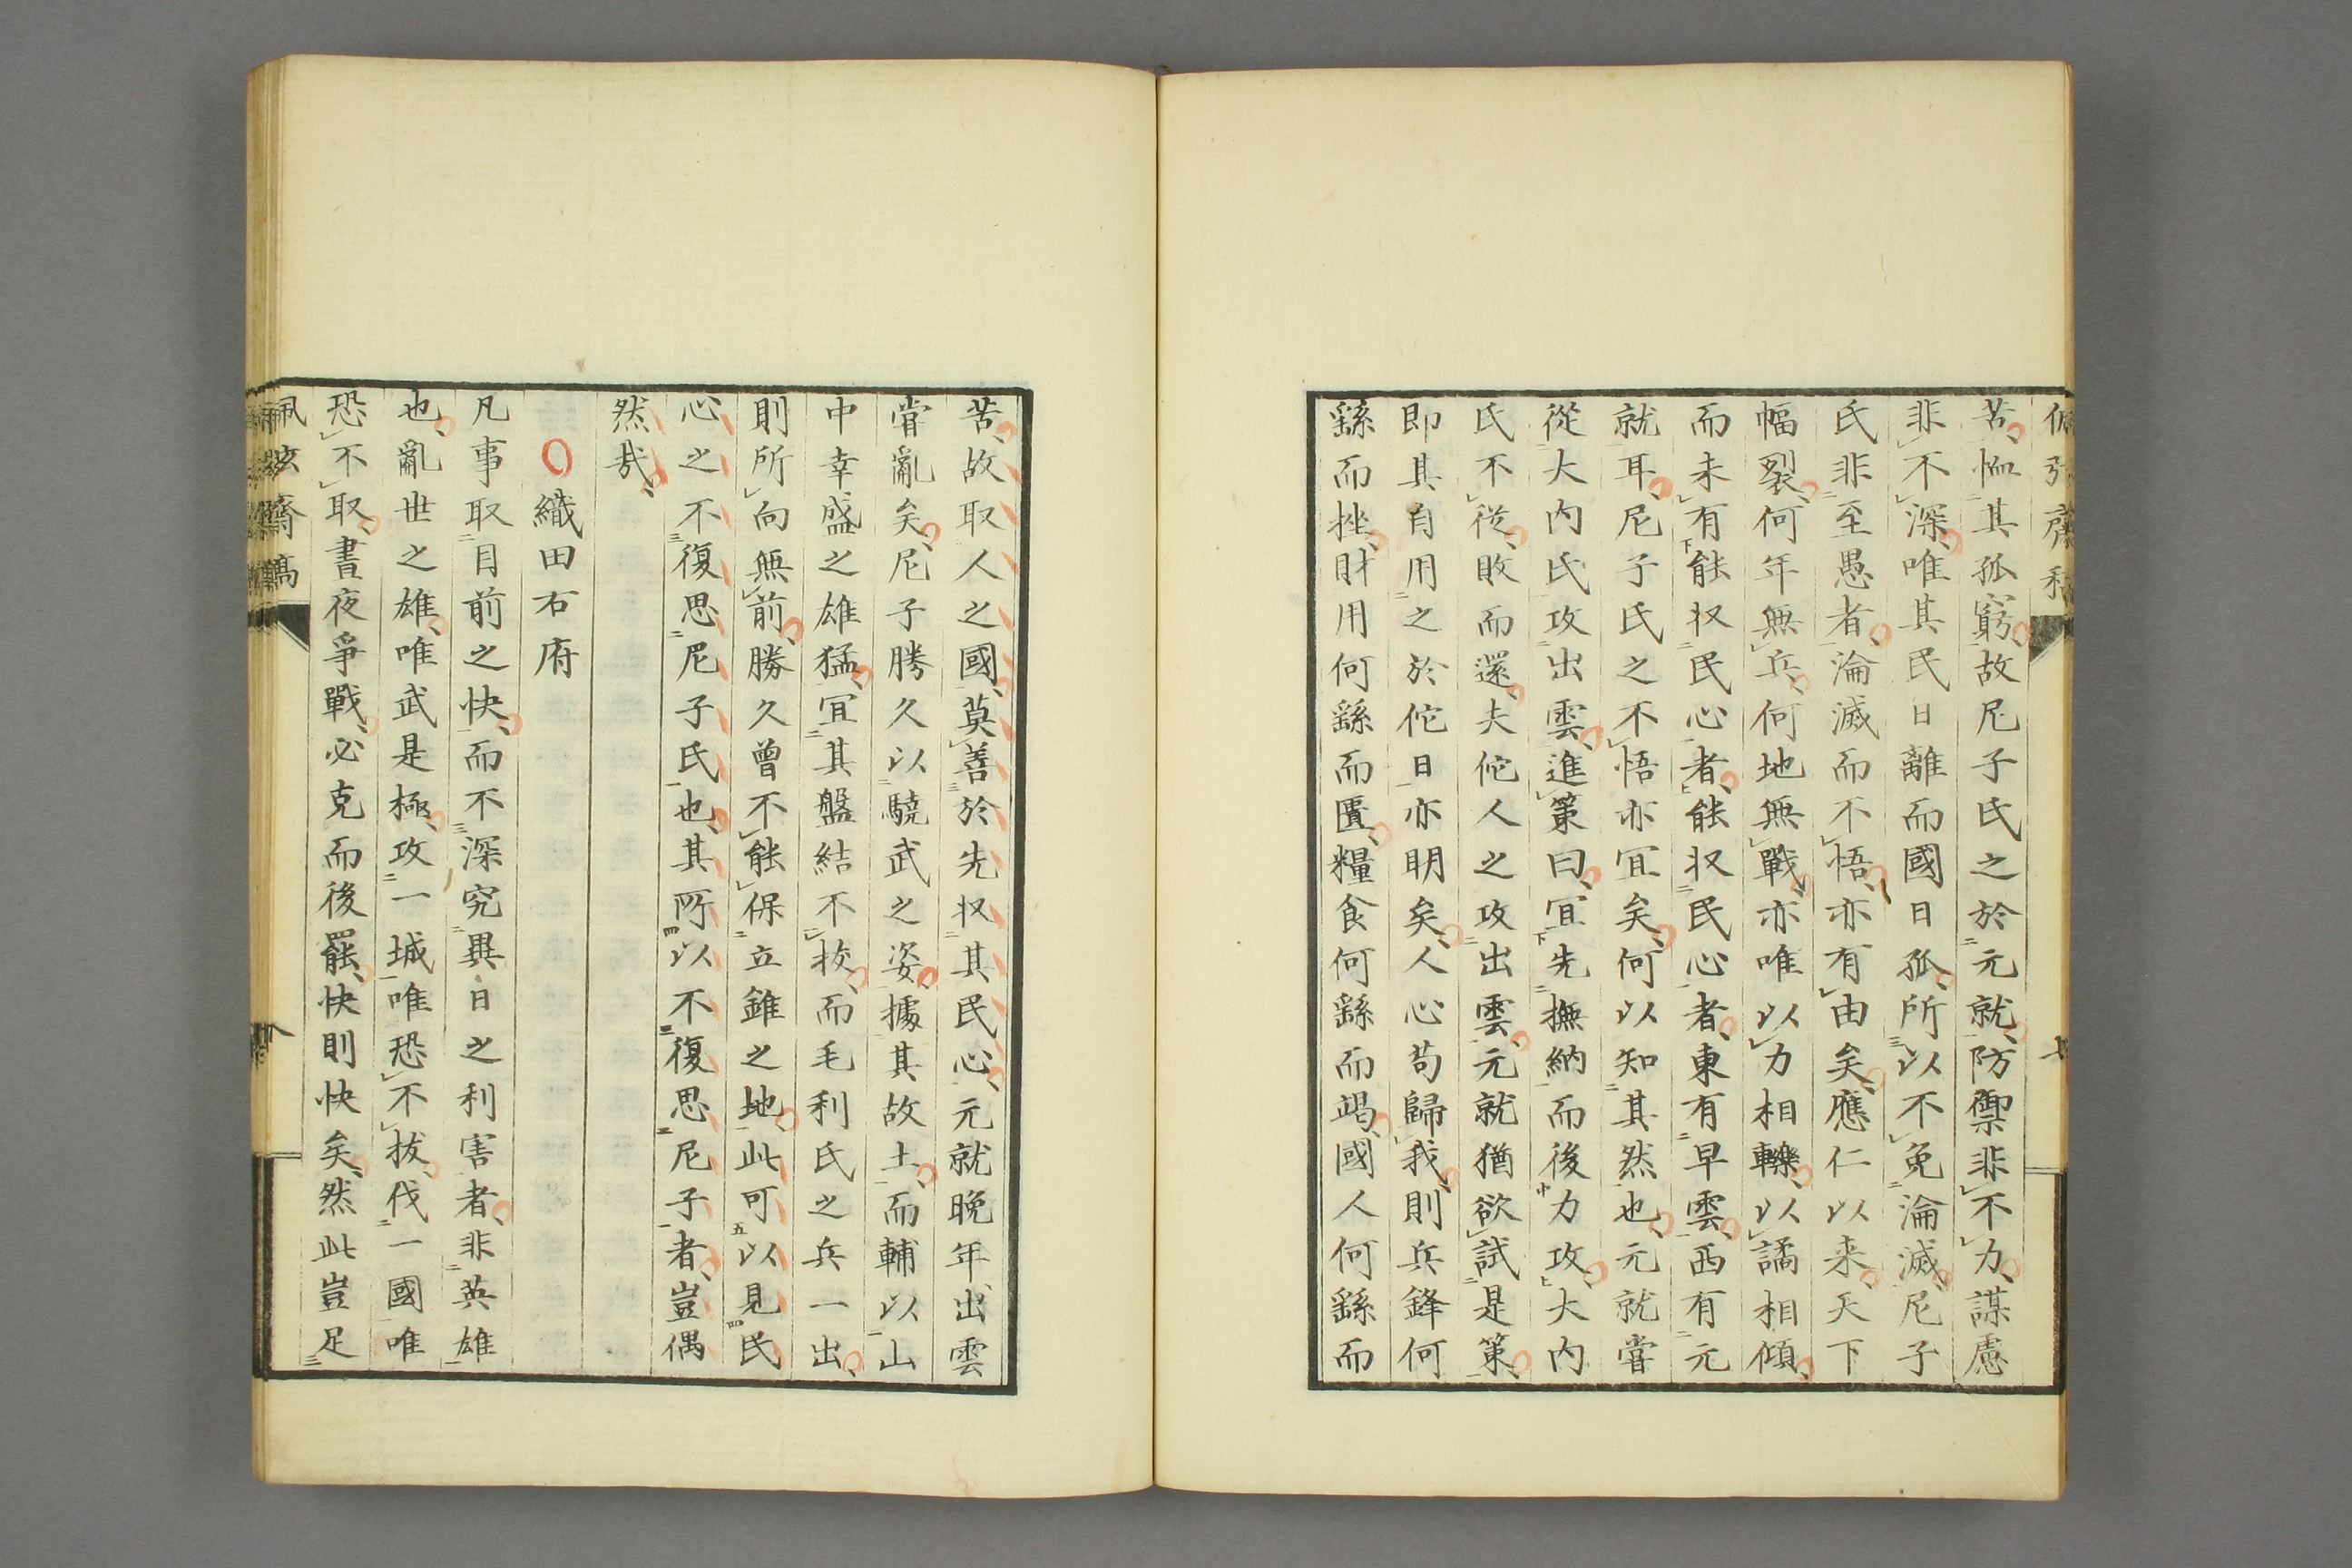 苦、恤其孤窮、故尼子氏之於元就、防禦非不力、謀慮
非不深、唯其民日離而國日孤、所以不免淪滅、尼子
氏非至愚者、淪滅而不悟、亦有由矣、應仁以来、天下
幅裂、何年無兵、何地無戰、亦唯以力相轢、以譎相傾、
而未有能収民心者、能収民心者、東有早雲、西有元
就耳、尼子氏之不悟亦冝矣、何以知其然也、元就嘗
從大内氏攻出雲、進策曰、冝先撫納而後力攻、大内
氏不從、敗而還、夫佗人之攻出雲、元就猶欲試是策、
即其自用之於佗日亦明矣、人心苟歸我、則兵鋒何
繇而挫、財用何繇而匱、糧食何繇而竭、國人何繇而
苦、故取人之國、莫善於先収其民心、元就晩年、出雲
甞亂矣、尼子勝久以驍武之姿、據其故土、而輔以山
中幸盛之雄猛、冝其盤結不拔、而毛利氏之兵一出、
則所向無前、勝久曾不能保立錐之地、此可以見民
心之不復思尼子氏也、其所以不復思尼子者、豈偶
然哉、
○織田右府
凡事取目前之快、而不深究異日之利害者、非英雄
也、亂世之雄、唯武是極、攻一城唯恐不拔、伐一國唯
恐不取、晝夜爭戰、必克而後罷、快則快矣、然此豈足
佩弦齋稿
八